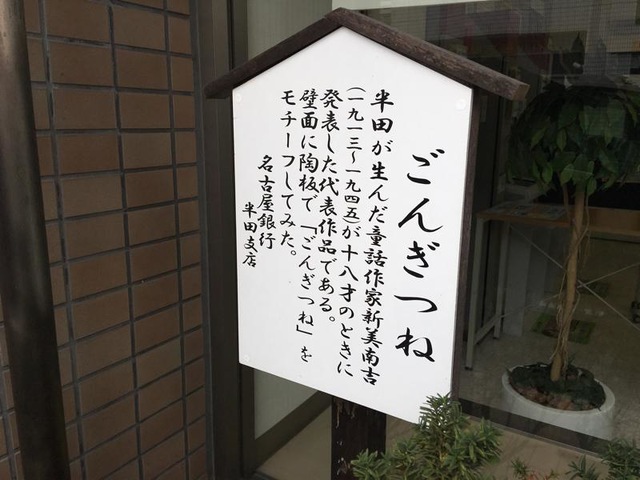 ごんぎつね
半田が生んだ童話作家新美南吉
（一九一三～一九四五）が十八才のときに
発表した代表作品である。
壁面に陶板で「ごんぎつね」を
モチーフしてみた。
名古屋銀行
半田支店